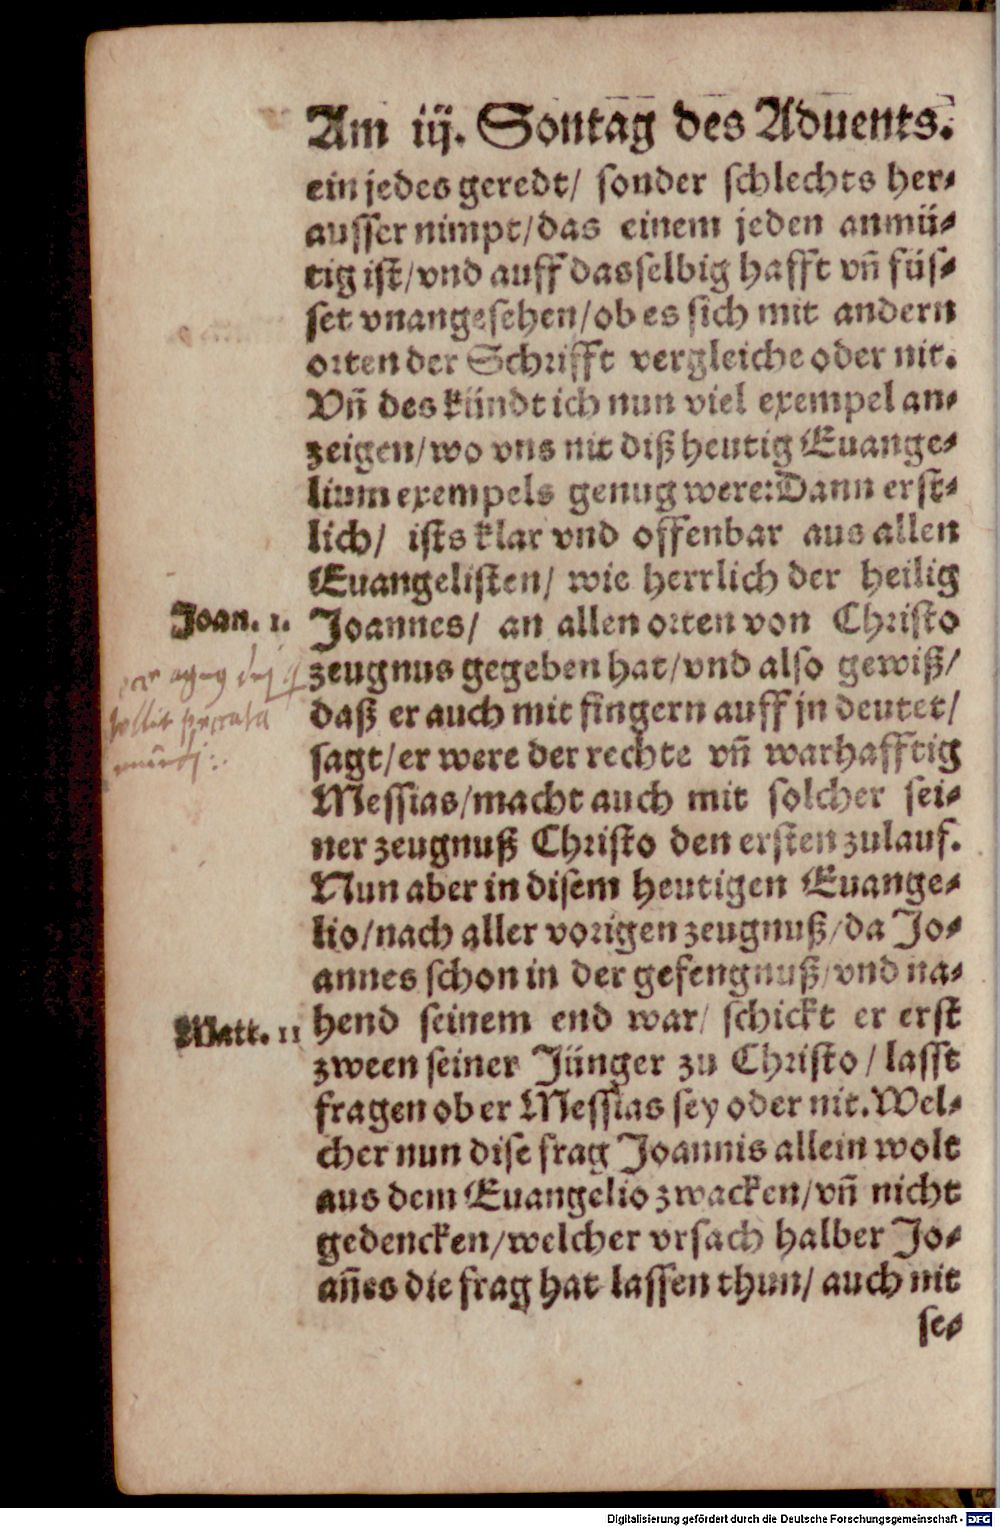 Am iij. Sontag des Aduents.
ein jedes geredt/ sonder schlechts her⸗
ausser nimpt/das einem jeden anmü⸗
tig ist/vnd auff dasselbig hafft vñ füs⸗
set vnangesehen/ob es sich mit andern
orten der Schrifft vergleiche oder nit.
Vñ des kündt ich nun viel exempel an⸗
zeigen/wo vns nit diß heutig Euange⸗
lium exempels genug were: Dann erst⸗
lich/ ists klar vnd offenbar aus allen
Euangelisten/ wie herrlich der heilig
Joan. 1.
Joannes/ an allen orten von Christo
zeugnus gegeben hat/vnd also gewiß/
daß er auch mit fingern auff jn deutet/
sagt/er were der rechte vñ warhafftig
Messias/macht auch mit solcher sei⸗
ner zeugnuß Christo den ersten zulauf.
Nun aber in disem heutigen Euange⸗
lio/nach aller vorigen zeugnuß/da Jo⸗
annes schon in der gefengnuß/vnd na⸗
Matt. 11
hend seinem end war/ schickt er erst
zween seiner Jünger zu Christo/ lasst
fragen ob er Messias sey oder nit. Wel⸗
cher nun dise frag Joannis allein wolt
aus dem Euangelio zwacken/vñ nicht
gedencken/welcher vrsach halber Jo⸗
añes die frag hat lassen thun/ auch nit
se⸗
tollit peccata
Digitalisierung gefördert durch die Deutsche Forschungsgemeinschaft - DFG